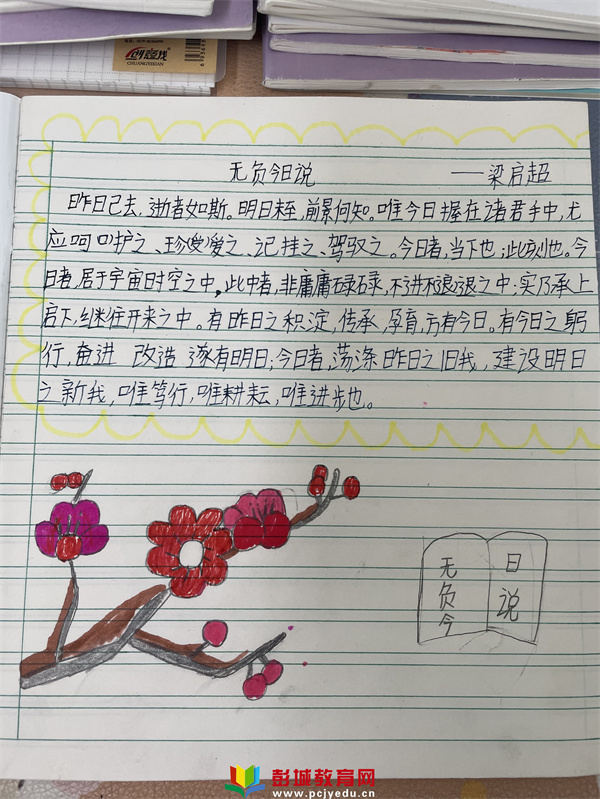 创意线
CHUANGYIXIAN
无负今日说 ——梁启超
昨日已去,逝者如斯。明日未至,前景何知。唯今日握在诸君手中,尤
应呵护之、珍爱之、记挂之、驾驭之。今日者,当下也;此刻也。今
日者,居于宇宙时空之中,此中者,非庸庸碌碌,不进不退之中;实乃承上
启下,继往开来之中。有昨日之积淀,传承,孕育,方有今日。有今日之躬
行,奋进 改造 遂有明日;今日者,荡涤昨日之旧我,建设明日
之新我,唯笃行,唯耕耘,唯进步也。
无负今
日说
彭城教育网
www.pcjyedu.cn